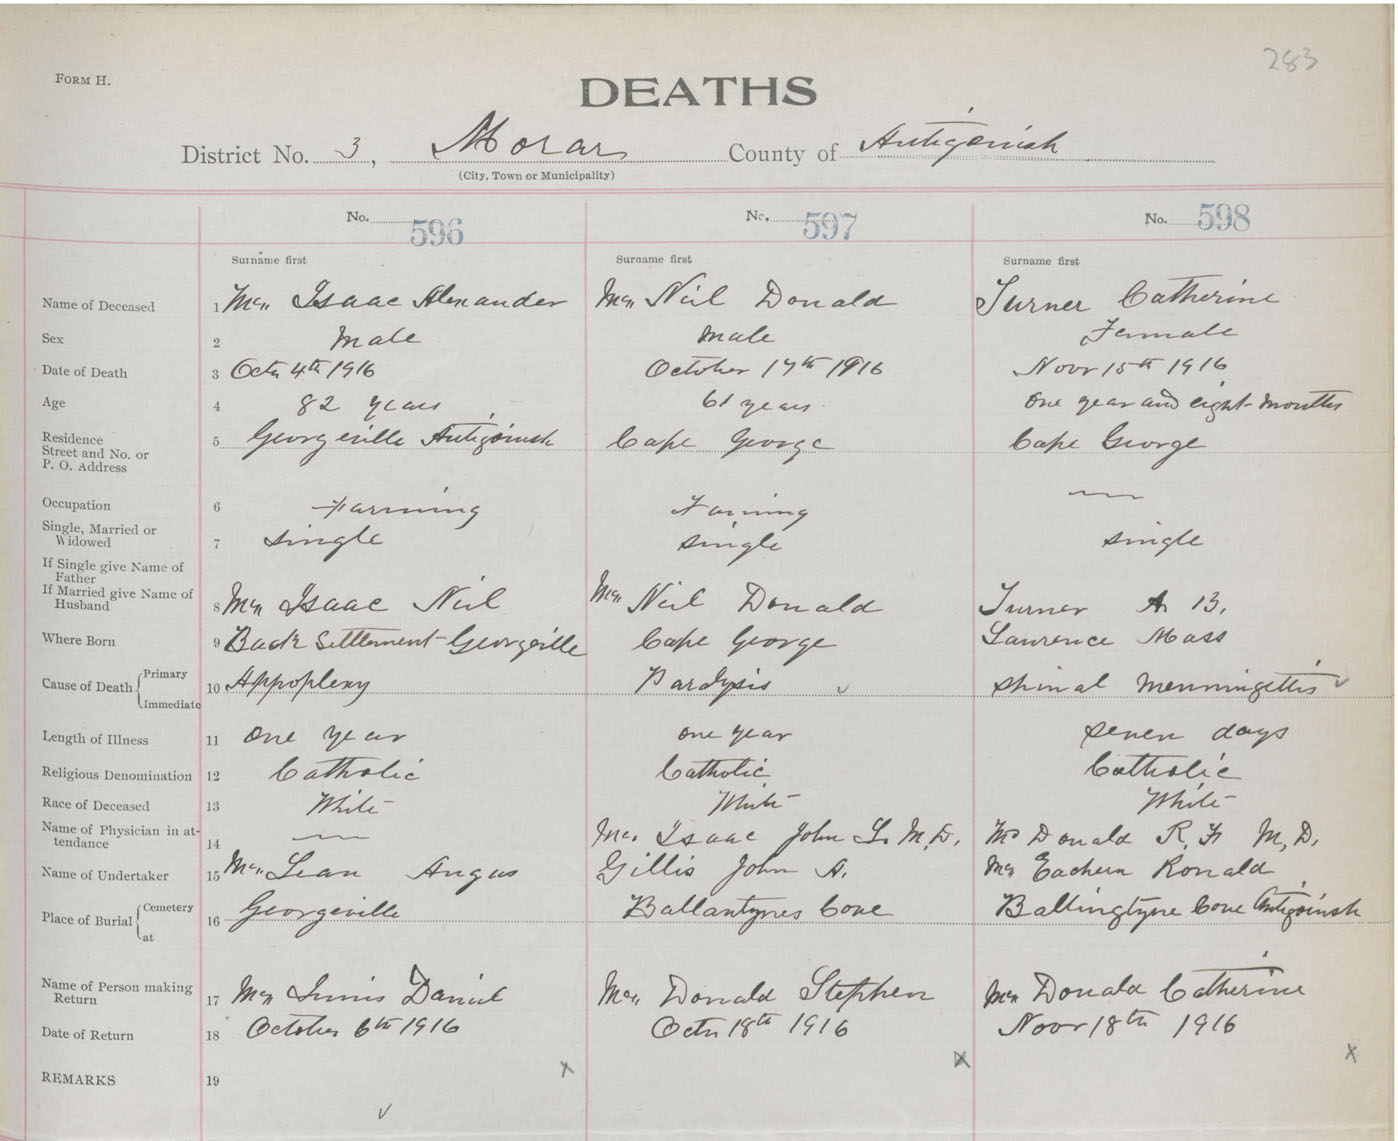 283
FORM H.
DEATHS
District No. 3, Morar County of Antigonish
(City, Town or Municipality)
No. 596 No. 597 No. 598
Surname first Surname first Surname first
Name of Deceased 1 Mc Isaac Alexander Mc Neil Donald Turner Catherine
Sex 2 Male Male Female
Date of Death 3 Octr 4th 1916 October 17th 1916 Novr 15th 1916
Age 4 82 years 61 years one year and eight months
Residence
Street and No. or 5 Georgeville Antigonish Cape George Cape George
P. O. Address
Occupation 6 Farming Farming —
Single, Married or
Widowed 7 single single single
If Single give Name of
Father
If Married give Name of
Husband 8 Mc Isaac Neil Mc Neil Donald Turner A. B.
Where Born 9 Back Settlement Georgeville Cape George Lawrence Mass
Cause of Death { Primary
10 Appoplexy Paralysis Spinal Menningettis
Immediate
Length of Illness 11 One year one year seven days
Religious Denomination 12 Catholic Catholic Catholic
Race of Deceased 13 White White White
Name of Physician in at-
tendance 14 — Mc Isaac John L. M.D. Mc Donald R. F. M.D.
Name of Undertaker 15 Mc Lean Angus Gillis John A. Mc Eachern Ronald
Place of Burial { Cemetery
16 Georgeville Ballantynes Cove Ballingtyne Cove Antigonish
at
Name of Person making
Return 17 Mc Innis Daniel Mc Donald Stephen Mc Donald Catherine
Date of Return 18 October 6th 1916 Octr 18th 1916 Novr 18th 1916
x x x
REMARKS 19